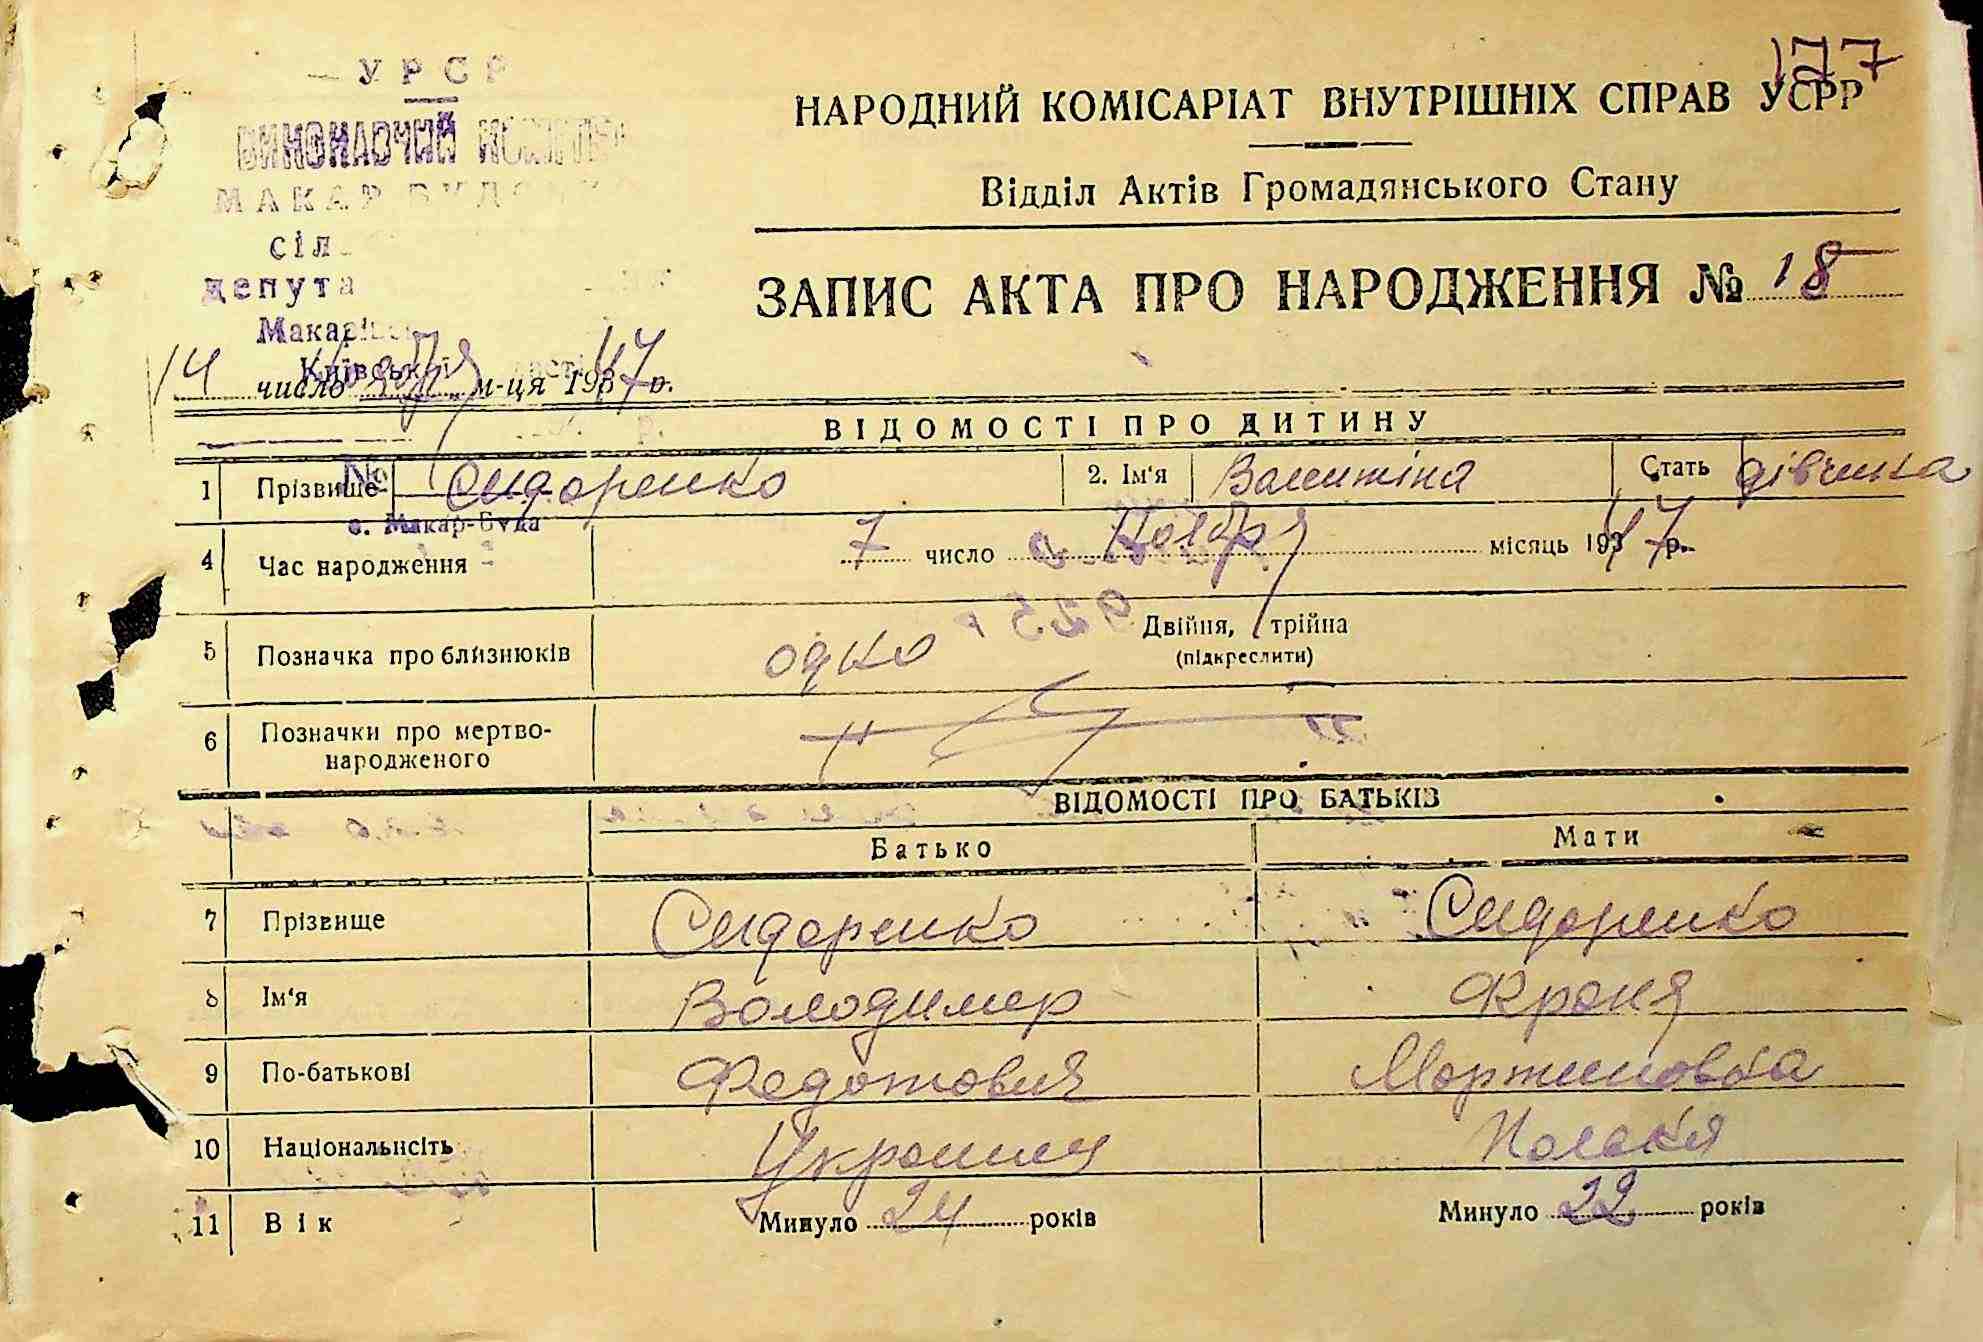 177
УРСР
ВИКОНАВЧИЙ КОМІТЕТ
МАКАР БУДСЬК
сіл
депута
Макарівс
Київської області
НАРОДНИЙ КОМІСАРІАТ ВНУТРІШНІХ СПРАВ УСРР
Відділ Актів Громадянського Стану
ЗАПИС АКТА ПРО НАРОДЖЕННЯ № 18
14 число ноября м-ця 1947 р.
ВІДОМОСТІ ПРО ДИТИНУ
№
1 Прізвище Сидоренко 2. Ім'я Валитіна Стать дівчина
с. Макар-Буда
4 Час народження 7 число Ноября місяць 1947 р.
5 Позначка про близнюків одно Двійня, трійна
(підкреслити)
6 Позначки про мертво-
народженого
ВІДОМОСТІ ПРО БАТЬКІВ
Батько Мати
7 Прізвище Сидоренко Сидоренко
8 Ім'я Володимер Франя
9 По-батькові Федотович Мартиновна
10 Національнсіть Украинец Полька
11 Вік Минуло 24 років Минуло 22 років